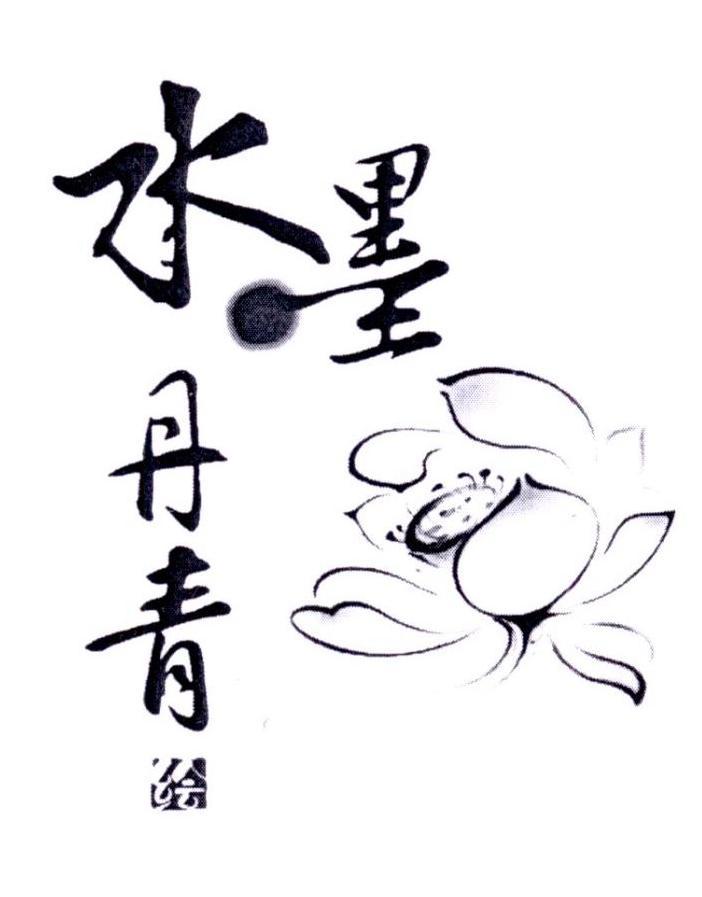 水墨
丹青
绘